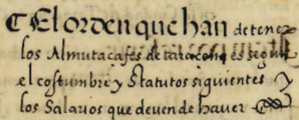 El orden que han de tener
los Almutaçafes de taraçona es segun
el costumbre y Statutos siguientes y
los Salarios que deven de haver